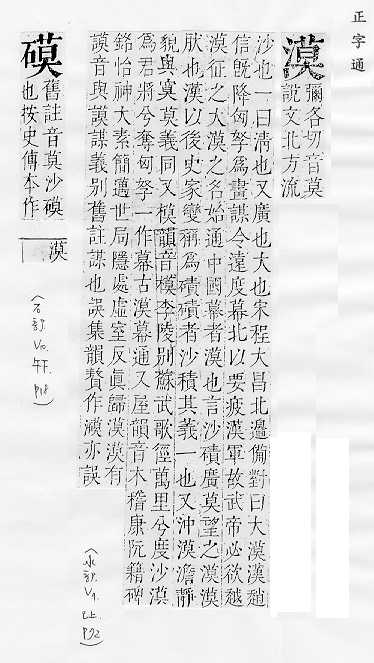 正字通
漠 彌各切音莫
說文北方流
沙也一曰清也又廣也大也宋程大昌北邊備對曰大漠漢趙
信旣降匈孥爲畫謀令遠度幕北以要疲漢軍故武帝必欲越
漠征之大漠之名始通中國幕者漠也言沙磧廣莫望之漠漠
肰也漢以後史家變稱爲磧磧者沙積其義一也又沖漠澹靜
貌與寞莫義同又模韻音模李陵別蘇武歌徑萬里兮度沙漠
爲君將兮奪匈孥一作幕古漠幕通又屋韻音木稽康阮籍碑
銘怡神大素簡邁世局隱處虛室反眞歸漠漠有
謨音與謨謀義別舊註謀也誤集韻贅作亦誤
(水部.巳上.p92)
舊註音莫沙
也按史傳本作
漠
(石部.午下.p18)